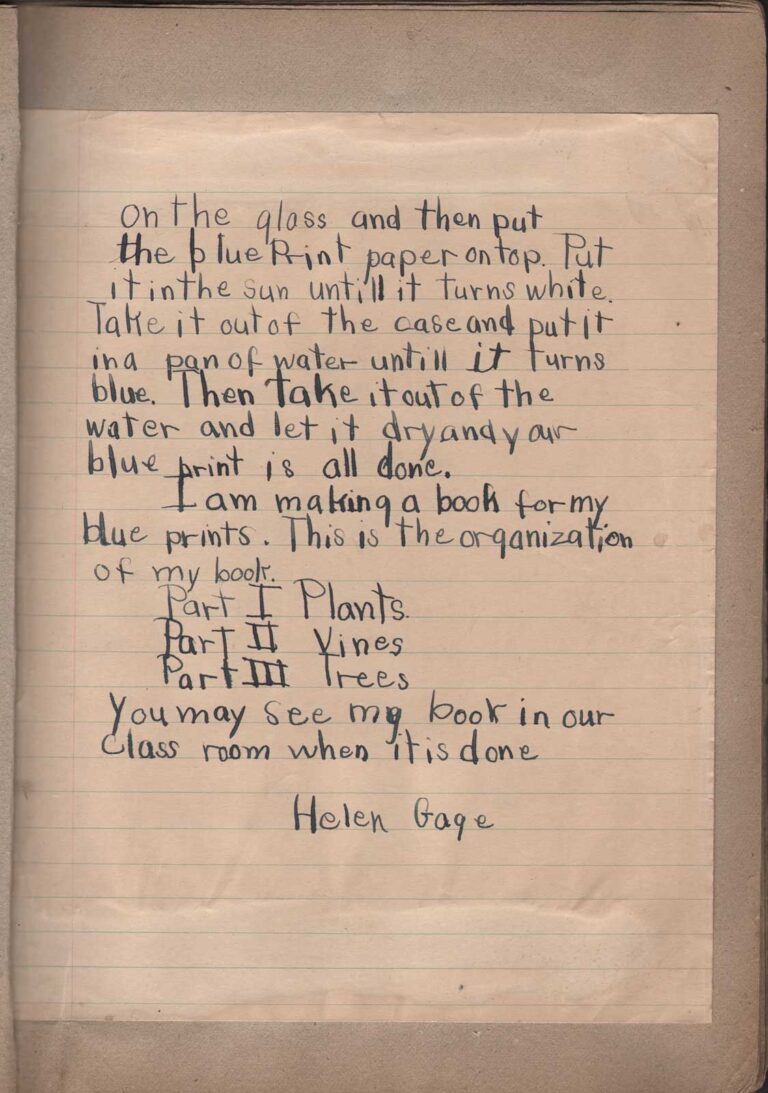 on the glass and then put
the blue Print paper on top. Put
it in the sun untill it turns white.
Take it out of the case and put it
in a pan of water untill it turns
blue. Then take it out of the
water and let it dry and your
blue print is all done.
I am making a book for my
blue prints. This is the organization
of my book.
Part I Plants.
Part II Vines
Part III Trees
You may see my book in our
Class room when it is done
Helen Gage